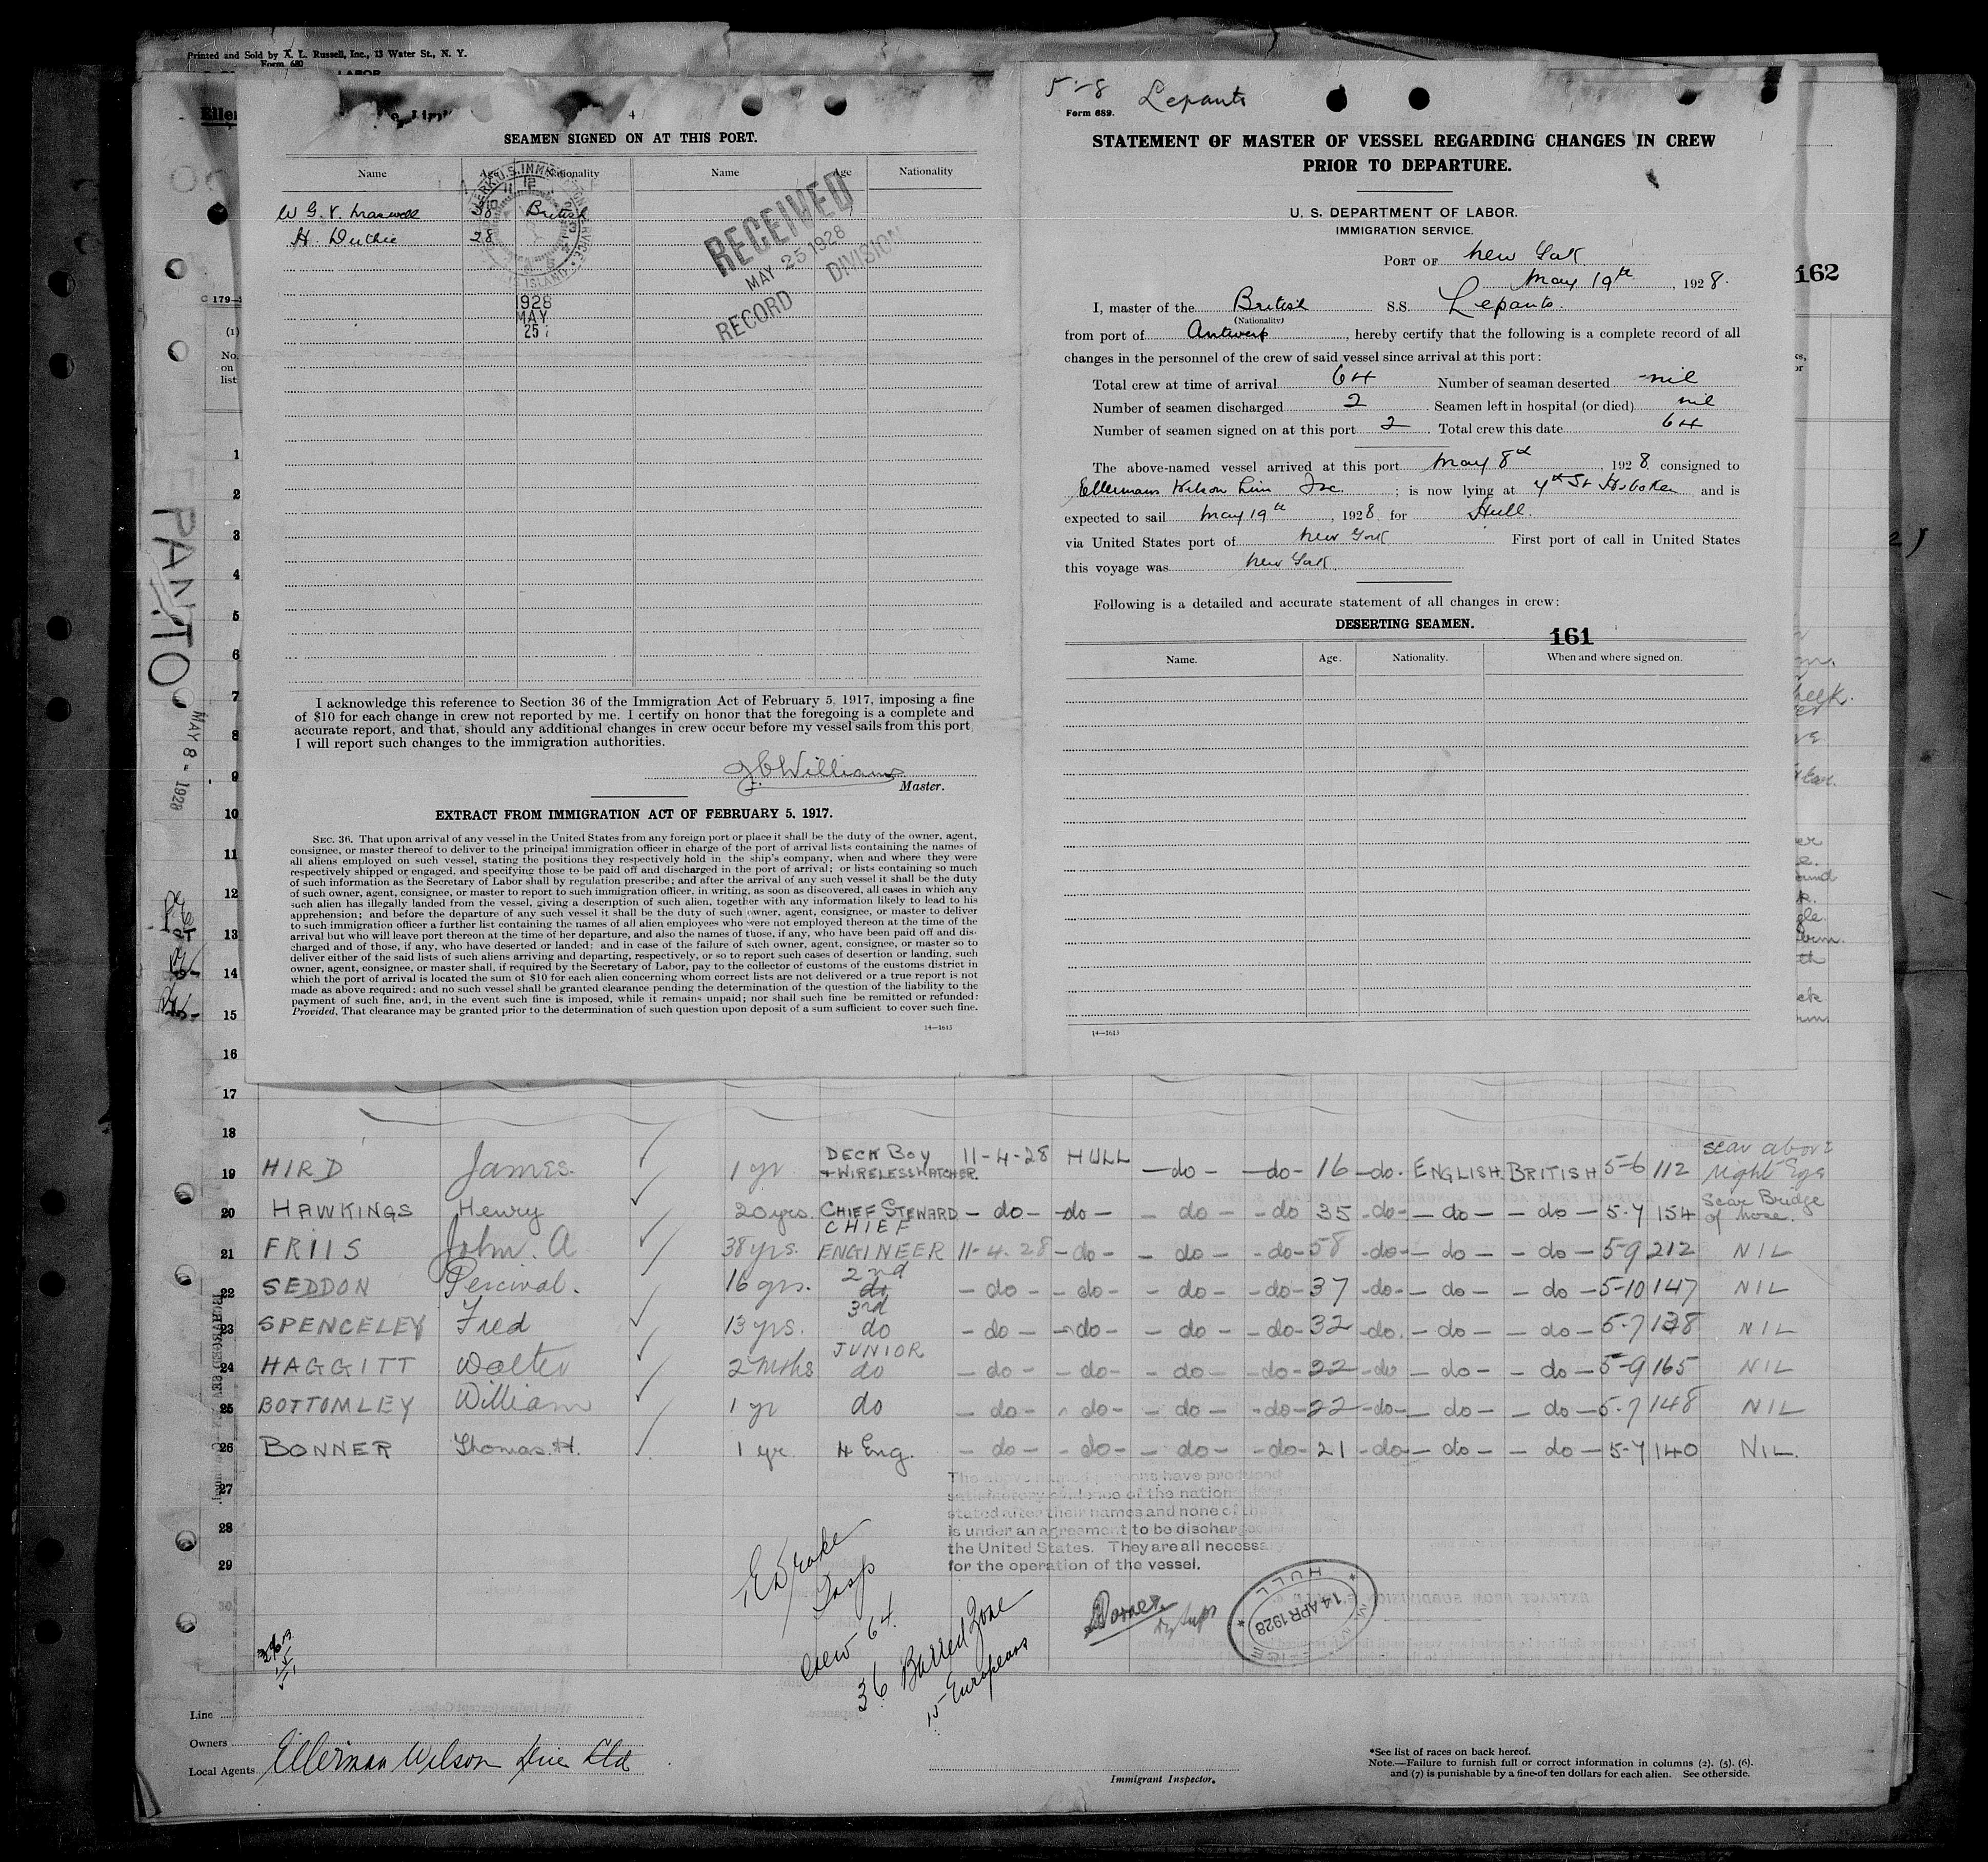 Printed and Sold by A. L. Russell, Inc., 13 Water St., N. Y.
Form 680
4
SEAMEN SIGNED ON AT THIS PORT.
Name Age Nationality Name Age Nationality
W G. V. Maxwell 38 British
H. Duthie 28
RECEIVED
MAY 25 1928
RECORD DIVISION
1928
MAY
25
I acknowledge this reference to Section 36 of the Immigration Act of February 5, 1917, imposing a fine
of $10 for each change in crew not reported by me. I certify on honor that the foregoing is a complete and
accurate report, and that, should any additional changes in crew occur before my vessel sails from this port
I will report such changes to the immigration authorities.
Williams
Master.
EXTRACT FROM IMMIGRATION ACT OF FEBRUARY 5, 1917.
SEC. 36. That upon arrival of any vessel in the United States from any foreign port or place it shall be the duty of the owner, agent,
consignee, or master thereof to deliver to the principal immigration officer in charge of the port of arrival lists containing the names of
all aliens employed on such vessel, stating the positions they respectively hold in the ship's company, when and where they were
respectively shipped or engaged, and specifying those to be paid off and discharged in the port of arrival; or lists containing so much
of such information as the Secretary of Labor shall by regulation prescribe; and after the arrival of any such vessel it shall be the duty
of such owner, agent, consignee, or master to report to such immigration officer, in writing, as soon as discovered, all cases in which any
such alien has illegally landed from the vessel, giving a description of such alien, together with any information likely to lead to his
apprehension; and before the departure of any such vessel it shall be the duty of such owner, agent, consignee, or master to deliver
to such immigration officer a further list containing the names of all alien employees who were not employed thereon at the time of the
arrival but who will leave port thereon at the time of her departure, and also the names of those, if any, who have been paid off and dis-
charged and of those, if any, who have deserted or landed; and in case of the failure of such owner, agent, consignee, or master so to
deliver either of the said lists of such aliens arriving and departing, respectively, or so to report such cases of desertion or landing, such
owner, agent, consignee, or master shall, if required by the Secretary of Labor, pay to the collector of customs of the customs district in
which the port of arrival is located the sum of $10 for each alien concerning whom correct lists are not delivered or a true report is not
made as above required; and no such vessel shall be granted clearance pending the determination of the question of the liability to the
payment of such fine, and, in the event such fine is imposed, while it remains unpaid; nor shall such fine be remitted or refunded:
Provided, That clearance may be granted prior to the determination of such question upon deposit of a sum sufficient to cover such fine.
14—1613
5-8 Lepanto
Form 689.
STATEMENT OF MASTER OF VESSEL REGARDING CHANGES IN CREW
PRIOR TO DEPARTURE.
U. S. DEPARTMENT OF LABOR.
IMMIGRATION SERVICE.
PORT OF New York
May 19th, 1928.
I, master of the British S.S. Lepanto.
(Nationality)
from port of Antwerp, hereby certify that the following is a complete record of all
changes in the personnel of the crew of said vessel since arrival at this port:
Total crew at time of arrival 64 Number of seaman deserted nil
Number of seamen discharged 2 Seamen left in hospital (or died) nil
Number of seamen signed on at this port 2. Total crew this date 64
The above-named vessel arrived at this port May 8th, 1928 consigned to
Ellermans Wilson Line Inc.; is now lying at 4th St Hoboken and is
expected to sail May 19th, 1928 for Hull.
via United States port of New York First port of call in United States
this voyage was New York.
Following is a detailed and accurate statement of all changes in crew:
DESERTING SEAMEN.
161
Name. Age. Nationality. When and where signed on.
14—1613
162
(1)
No.
on
list
LEPANTO
MAY 8 - 1928
1
2
3
4
5
6
7
8
9
10
11
12
13
14
15
16
17
18
19 HIRD James. 1 yr DECK BOY + WIRELESS WATCHER. 11-4-28 HULL —do— —do— 16 —do. ENGLISH. BRITISH 5-6 112 Scar above Right Eye
20 HAWKINGS Henry 20 yrs. CHIEF STEWARD —do— —do— —do— —do 35 —do— —do— —do— 5-7 154 Scar Bridge of nose.
21 FRIIS John. A 38 yrs. CHIEF ENGINEER 11-4-28 —do— —do— —do— 58 —do— —do— —do— 5-9 212 NIL
22 SEDDON Percival. 16 yrs. 2nd do —do— —do— —do— —do— 37 —do— —do— —do— 5-10 147 NIL
23 SPENCELEY Fred 13 yrs. 3rd do —do— —do— —do— —do— 32 —do. —do— —do— 5-7 138 NIL
24 HAGGITT Walter 2 Mths JUNIOR do —do— —do— —do— —do— 22 —do —do— —do— 5-9 165 NIL
25 BOTTOMLEY William 1 yr do —do— —do— —do— —do— 22 —do— —do— —do— 5-7 148 NIL
26 BONNER Thomas. H. 1 yr 4 Eng. —do— —do— —do— —do— 21 —do— —do— —do— 5-7 140 NIL.
27
28
29
30
The above named persons have produced
satisfactory evidence of the nation
stated after their names and none of them
is under an agreement to be discharged
the United States. They are all necessa
for the operation of the vessel.
E Drake
Insp
Crew 64.
36 Barred Zone
15 Europeans
HULL
14 APR 1928
Line
Owners
Local Agents Ellerman Wilson Line Ltd
Immigrant Inspector.
*See list of races on back hereof.
Note.—Failure to furnish full or correct information in columns (2), (5), (6).
and (7) is punishable by a fine of ten dollars for each alien. See other side.